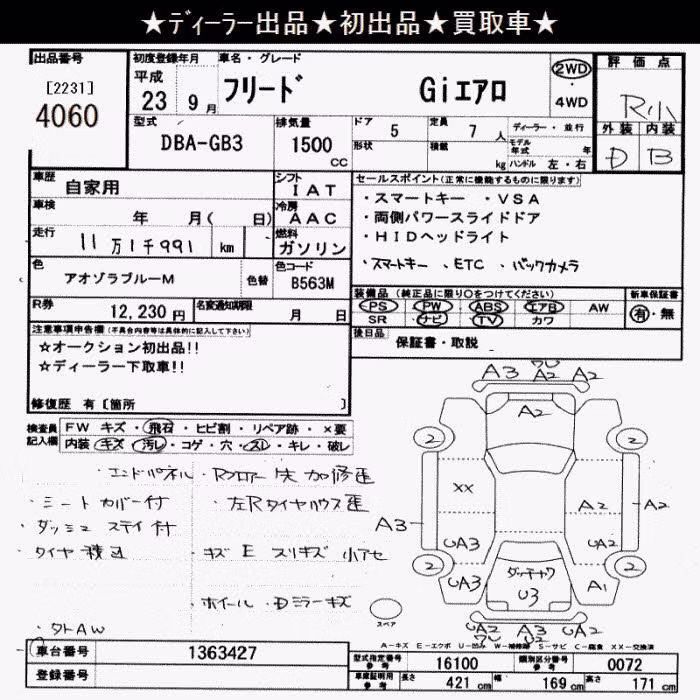 ★ディーラー出品★初出品★買取車★
出品番号
[2231]
4060
初度登録年月
平成
23 9 月
車名・グレード
フリード Giエアロ
2WD
・
4WD
評価点
R小
外装 内装
D B
型式
DBA-GB3
排気量
1500
cc
ドア 5
形状
定員 7 人
積載 kg
ディーラー・並行
モデル年式 年
ハンドル 左・右
車歴
自家用
シフト
IAT
車検
年 月( 日)
冷房
AAC
走行
11万1千991 km
燃料
ガソリン
色
アオゾラブルーM
色替
色コード
B563M
セールスポイント(正常に機能するものに限ります)
・スマートキー ・VSA
・両側パワースライドドア
・HIDヘッドライト
・スマートキー、ETC、バックカメラ
R券 12,230 円
名変通知期限
月 日
装備品(純正品に限り○をつけてください)
PS PW ABS エアB AW
SR ナビ TV カワ
新車保証書
有・無
後日品
保証書・取説
注意事項申告欄(不具合内容等は具体的に記入して下さい)
☆オークション初出品!!
☆ディーラー下取車!!
修復歴 有〔箇所 〕
検査員記入欄
FW キズ・飛石・ヒビ割・リペア跡・×要
内装 キズ・汚レ・コゲ・穴・スレ・キレ・破レ
・エンドパネル・Rフロアー 先 加修歪
・シートカバー付 ・左Rタイヤハウス歪
・ダッシュ ステイ付
・タイヤ積込 ・キズ E スリキズ 小アセ
・ホイール・Dミラーキズ
・タトAW
A3 A2 A2
A2
2 2
XX
A2
A2
A3
UA3
UA2
2 2
UA3
A1
ダッチャク
U3
UA2 A3 UA2
スペア
A-キズ E-エクボ U-凹み W-補修跡 S-サビ C-腐食 XX-交換済
車台番号
1363427
登録番号
型式指定番号
参考
16100
類別区分番号
参考
0072
車庫証明用
参考
長さ 421 cm
幅 169 cm
高さ 171 cm